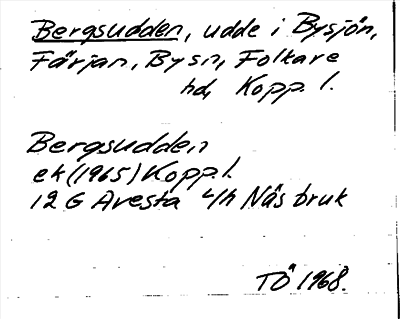 Bergsudden, udde i Bysjön,
Färjan, Bysn, Folkare
hd, Kopp. l.
Bergsudden
ek (1965) Kopp. l.
12 G Avesta 4/h Näs bruk
TÖ 1968.